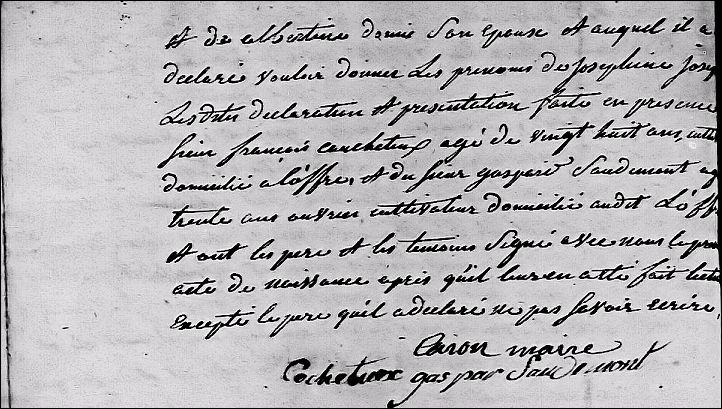 et de albertine demie son epouse et auquel il a
declaré vouloir donner les prenoms de Josephine Josep
Lesdites declaration et presentation faite en presence
sieur françois cauchetux agé de vingt huit ans, culti
domicilié a lóffre, et du sieur gasparé Saudemont ag
trente ans ouvrier cultivateur domicilié audit Lóff
et ont les pere et les temoins signé avec nous le pres
acte de naissance après qúil leur en a été fait lectu
Excepté le pere qúil a declaré ne pas Savoir ecrire,
Caron maire
Cocheteux gaspar Saudemont